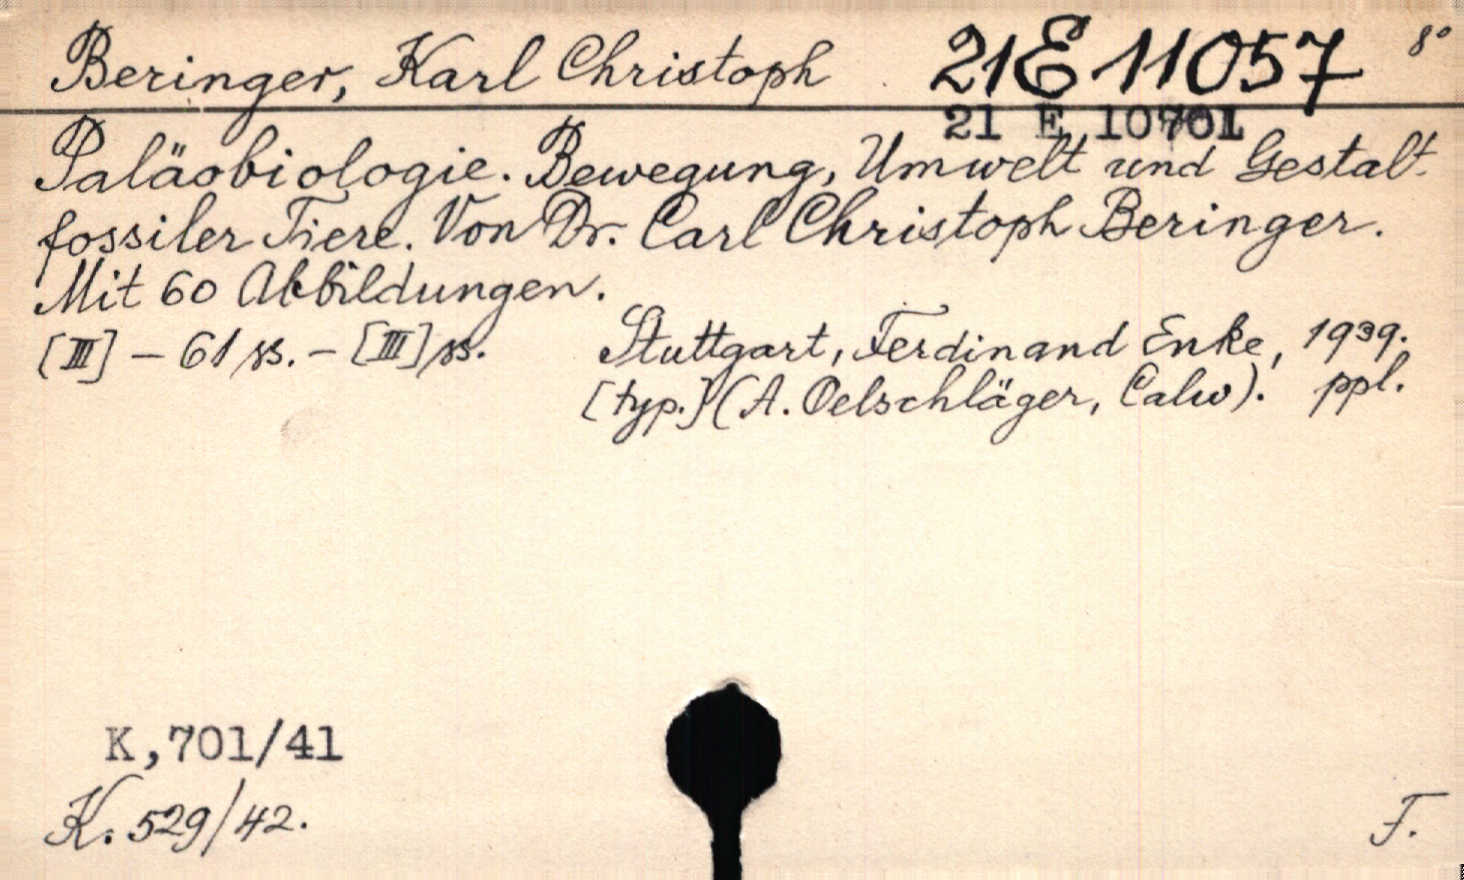 Beringer, Karl Christoph 21 E 11057 8°
21 E 10701
Paläobiologie. Bewegung, Umwelt und Gestalt
fossiler Tiere. Von Dr. Carl Christoph Beringer.
Mit 60 Abbildungen.
[III] – 61 ss. – [III] ss. Stuttgart, Ferdinand Enke, 1939.
[typ.] (A. Oelschläger, Calw). ppl.
K,701/41
K. 529/42.
F.